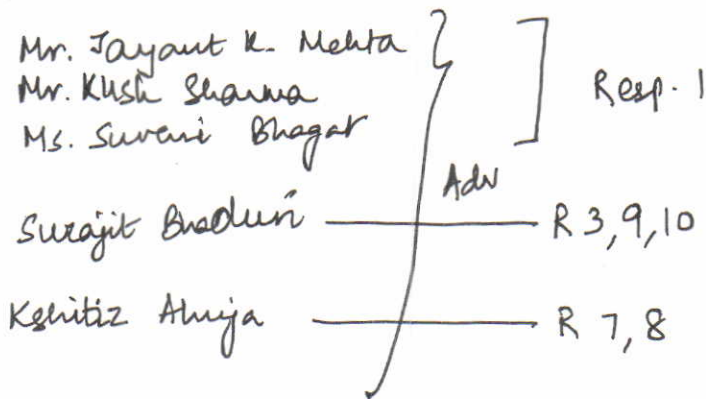 Mr. Jayant K. Mehta
Mr. Kush Sharma Resp. 1
Ms. Suveni Bhagat
Adv
Surajit Bhaduri R 3, 9, 10
Kshitiz Ahuja R 7, 8